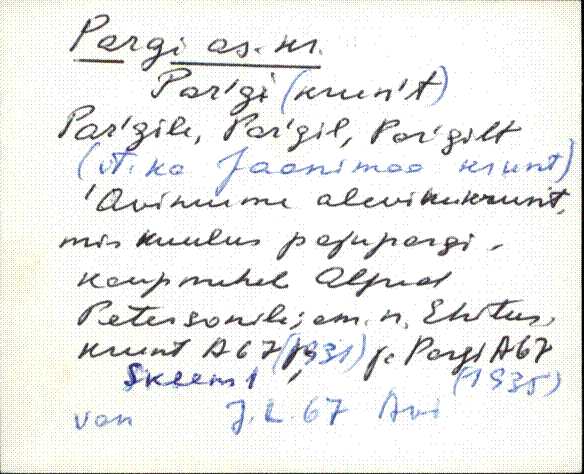 Pargi as. kr.
Par'gi (krun't)
Par'gile, Par'gil, Par'gilt
(vt. ka Jaanimaa krunt)
'Avinurme alevikukrunt,
mis kuulus pajupargi-
kaupmehele Alfred
Petersonile; am. n. Ehitus-
krunt A67 (1931) ja Pargi A67
Skeem 1 (1935)
van J.K. 67 Avi